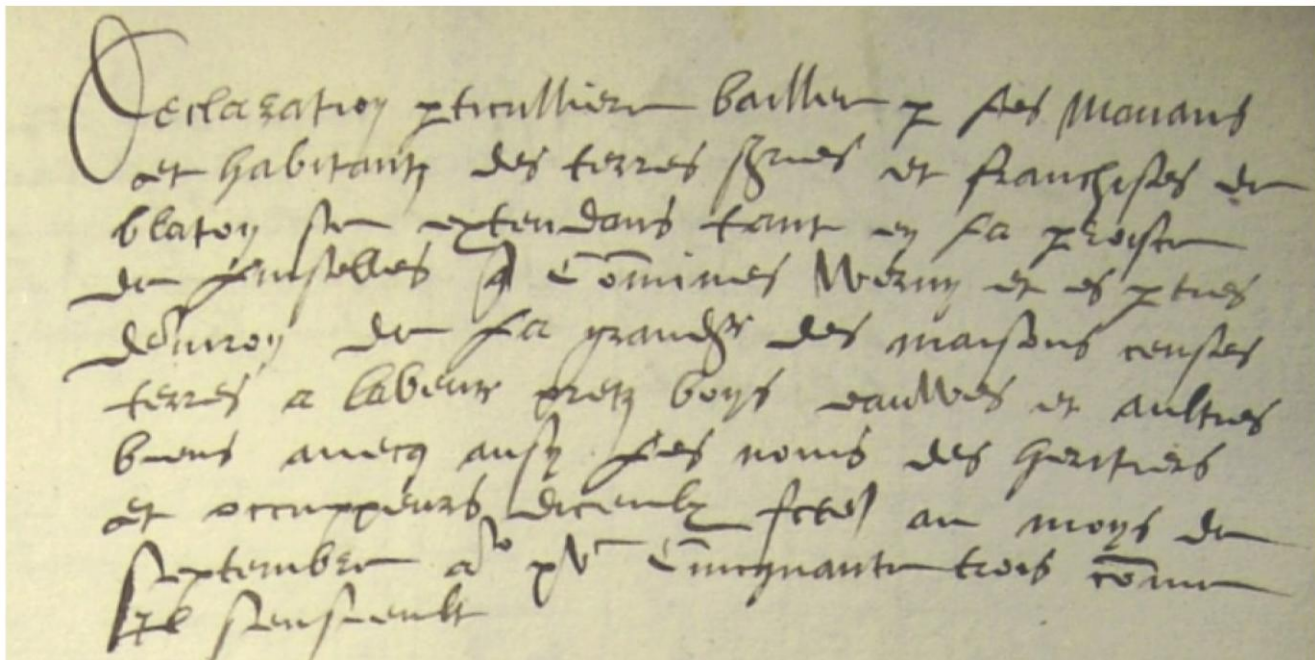 Declaration pticulliere baillie p les Manans
et habitantz des terres sgries et franchises de
blaton se extendans tant en la proisce
de Linselles q Commines Wervy et es pties
denviron de la grandr des maisons censses
terres a labeur pretz boys eauwes et aultres
biens avecq aussy les noms des heritiers
et occuppeurs diceulx fctes au moys de
Septembre ao xvc Cincquante trois come
il senssieult